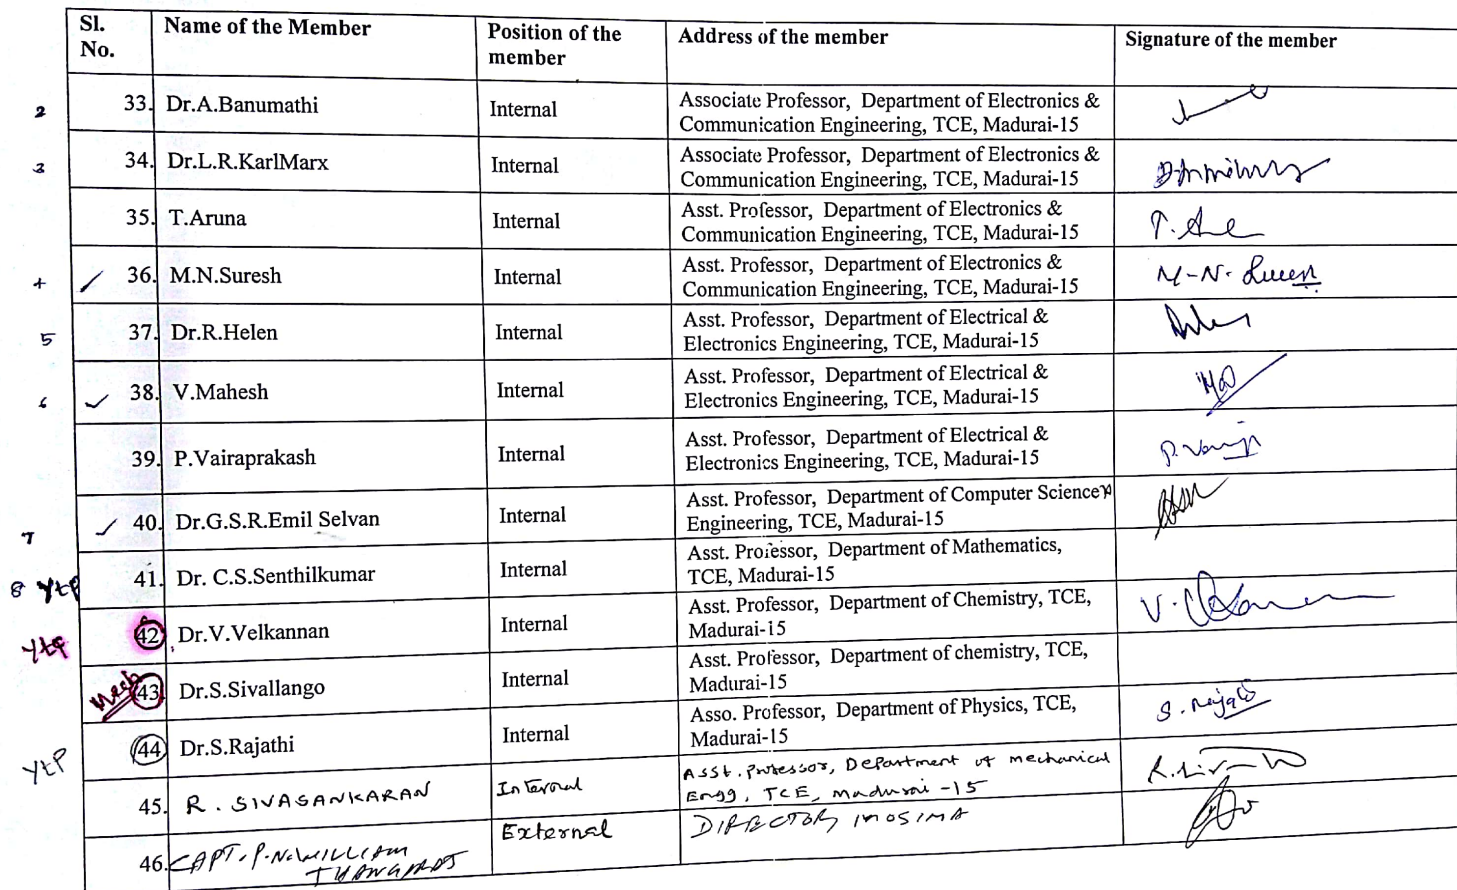 Sl. No. Name of the Member Position of the member Address of the member Signature of the member
2 33. Dr.A.Banumathi Internal Associate Professor, Department of Electronics &
Communication Engineering, TCE, Madurai-15
3 34. Dr.L.R.KarlMarx Internal Associate Professor, Department of Electronics &
Communication Engineering, TCE, Madurai-15
35. T.Aruna Internal Asst. Professor, Department of Electronics &
Communication Engineering, TCE, Madurai-15
4 ✓ 36. M.N.Suresh Internal Asst. Professor, Department of Electronics & M-N-
Communication Engineering, TCE, Madurai-15
5 37. Dr.R.Helen Internal Asst. Professor, Department of Electrical &
Electronics Engineering, TCE, Madurai-15
6 ✓ 38. V.Mahesh Internal Asst. Professor, Department of Electrical &
Electronics Engineering, TCE, Madurai-15
39. P.Vairaprakash Internal Asst. Professor, Department of Electrical &
Electronics Engineering, TCE, Madurai-15
7 ✓ 40. Dr.G.S.R.Emil Selvan Internal Asst. Professor, Department of Computer Science
Engineering, TCE, Madurai-15
8 YtP 41. Dr. C.S.Senthilkumar Internal Asst. Professor, Department of Mathematics,
TCE, Madurai-15
YtP 42. Dr.V.Velkannan Internal Asst. Professor, Department of Chemistry, TCE,
Madurai-15
Mech 43. Dr.S.Sivallango Internal Asst. Professor, Department of chemistry, TCE,
Madurai-15
YtP 44. Dr.S.Rajathi Internal Asso. Professor, Department of Physics, TCE, S. Rajathi
Madurai-15
45. R. SIVASANKARAN Internal Asst. Professor, Department of mechanical
Engg, TCE, madurai -15
46. CAPT. P.N. WILLIAM External DIRECTOR, IMOSIMA
THANGARAJ